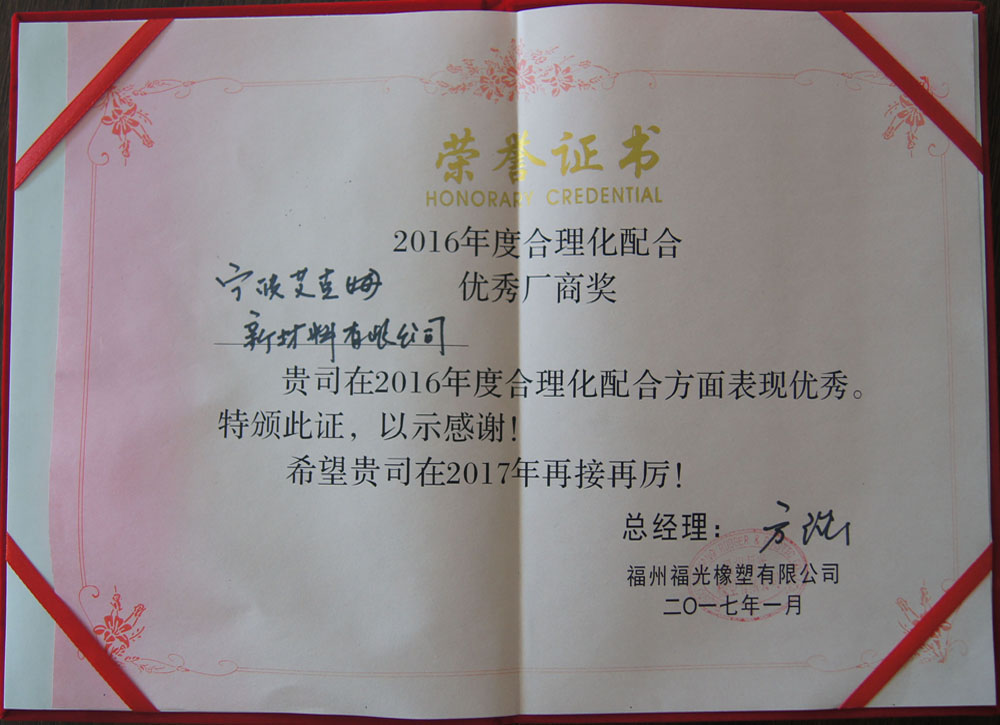 荣誉证书
HONORARY CREDENTIAL
2016年度合理化配合
优秀厂商奖
宁波艾克姆
新材料有限公司
贵司在2016年度合理化配合方面表现优秀。
特颁此证，以示感谢！
希望贵司在2017年再接再厉！
总经理：方
福州福光橡塑有限公司
二〇一七年一月